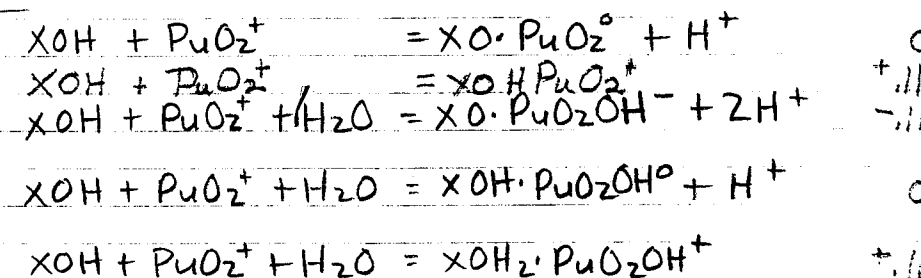 XOH + PuO₂⁺ = XO·PuO₂° + H⁺ 0
XOH + PuO₂⁺ = XOHPuO₂⁺ +.11
XOH + PuO₂⁺ + H₂O = XO·PuO₂OH⁻ + 2H⁺ -.11
XOH + PuO₂⁺ + H₂O = XOH·PuO₂OH° + H⁺ 0
XOH + PuO₂⁺ + H₂O = XOH₂·PuO₂OH⁺ +.11